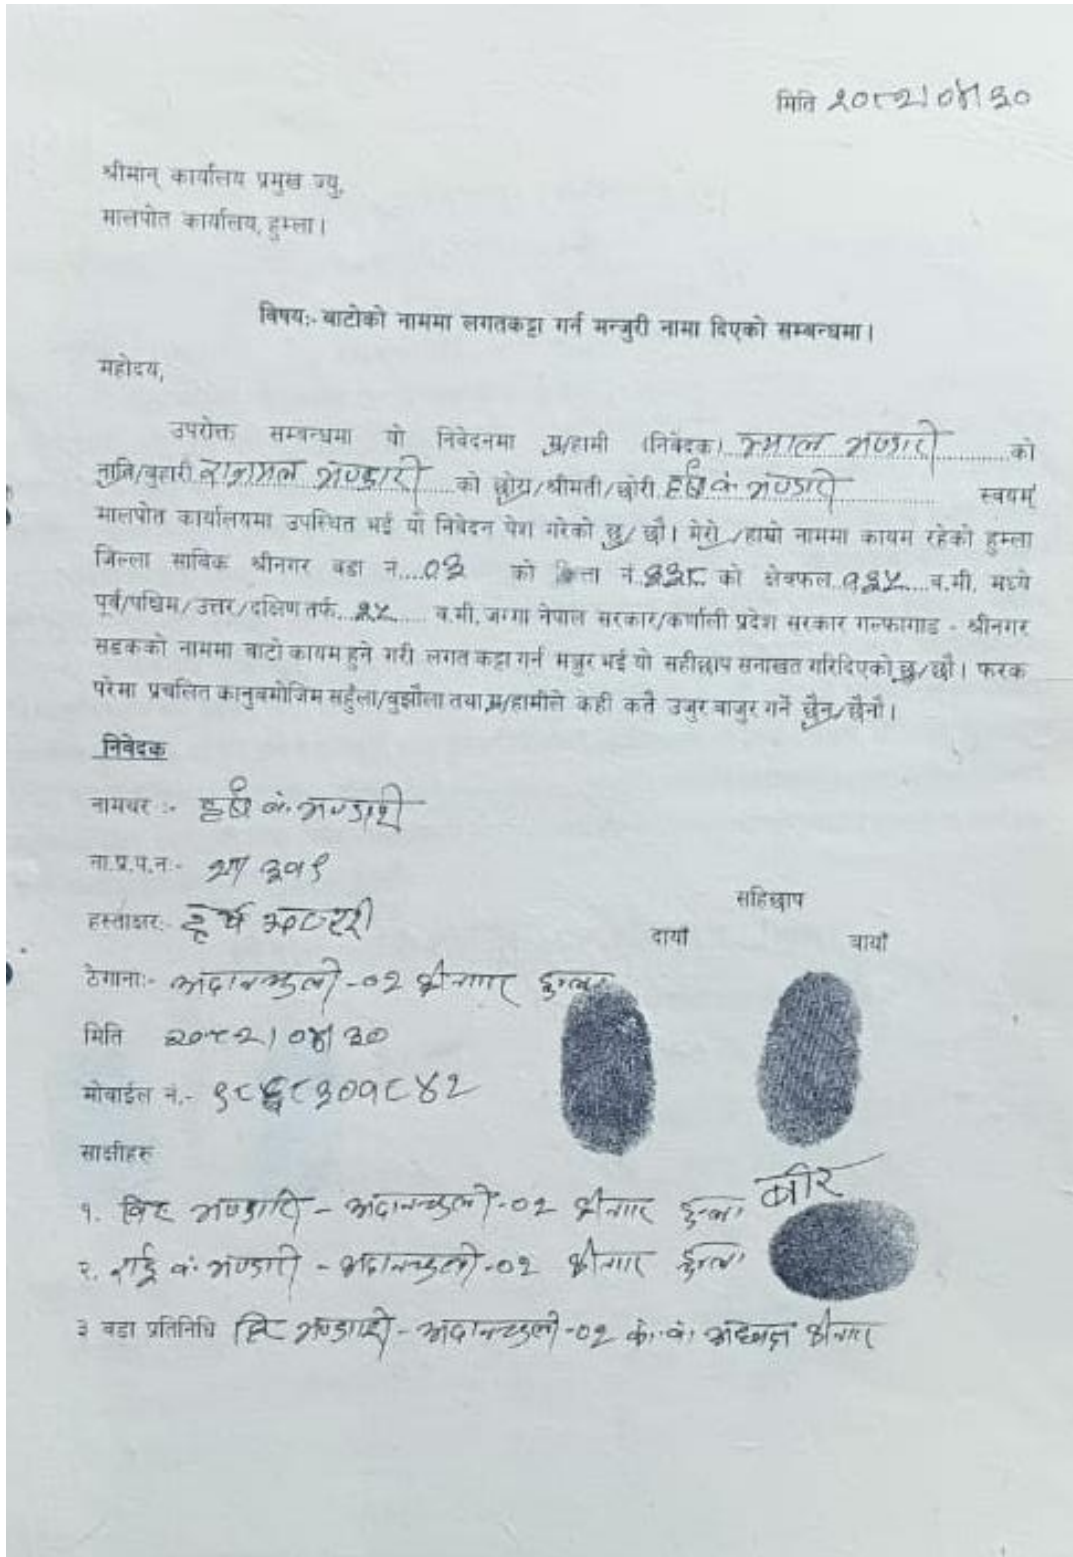 मिति २०८२।०४।३०
श्रीमान् कार्यालय प्रमुख ज्यु,
मालपोत कार्यालय, हुम्ला।
विषयः- बाटोको नाममा लगतकट्टा गर्न मन्जुरी नामा दिएको सम्बन्धमा।
महोदय,
उपरोक्त सम्बन्धमा यो निवेदनमा म/हामी (निवेदक) भण्डारी को
नाति/बुहारी भण्डारी को छोरा/श्रीमती/छोरी हर्ष व. भण्डारी स्वयम्
मालपोत कार्यालयमा उपस्थित भई यो निवेदन पेश गरेको छु/ छौ। मेरो /हाम्रो नाममा कायम रहेको हुम्ला
जिल्ला साविक श्रीनगर वडा नं. ०३ को कित्ता नं. ३३८ को क्षेत्रफल १३५ व.मी. मध्ये
पूर्व/पश्चिम/उत्तर/दक्षिण तर्फ व.मी. जग्गा नेपाल सरकार/कर्णाली प्रदेश सरकार गल्फागाड - श्रीनगर
सडकको नाममा बाटो कायम हुने गरी लगत कट्टा गर्न मञ्जुर भई यो सहीछाप सनाखत गरिदिएको छु/ छौ। फरक
परेमा प्रचलित कानुबमोजिम सहुँला/बुझौला तथा म/हामीले कही कतै उजुर बाजुर गर्ने छैन/ छैनौ।
निवेदक
नामथर :- हर्ष व. भण्डारी
ना.प्र.प.न.-
हस्ताक्षर:- हर्ष
सहिछाप
दायाँ बायाँ
ठेगाना:- अदानचुली-०२ श्रीनगर हुम्ला
मिति २०८२।०४।३०
मोबाईल नं.- ९८६८३०१८४२
साक्षीहरु
बीर
१. भण्डारी - अदानचुली-०२ श्रीनगर हुम्ला
२. व. भण्डारी - अदानचुली-०२ श्रीनगर हुम्ला
३ वडा प्रतिनिधि भण्डारी - अदानचुली-०२ श्रीनगर